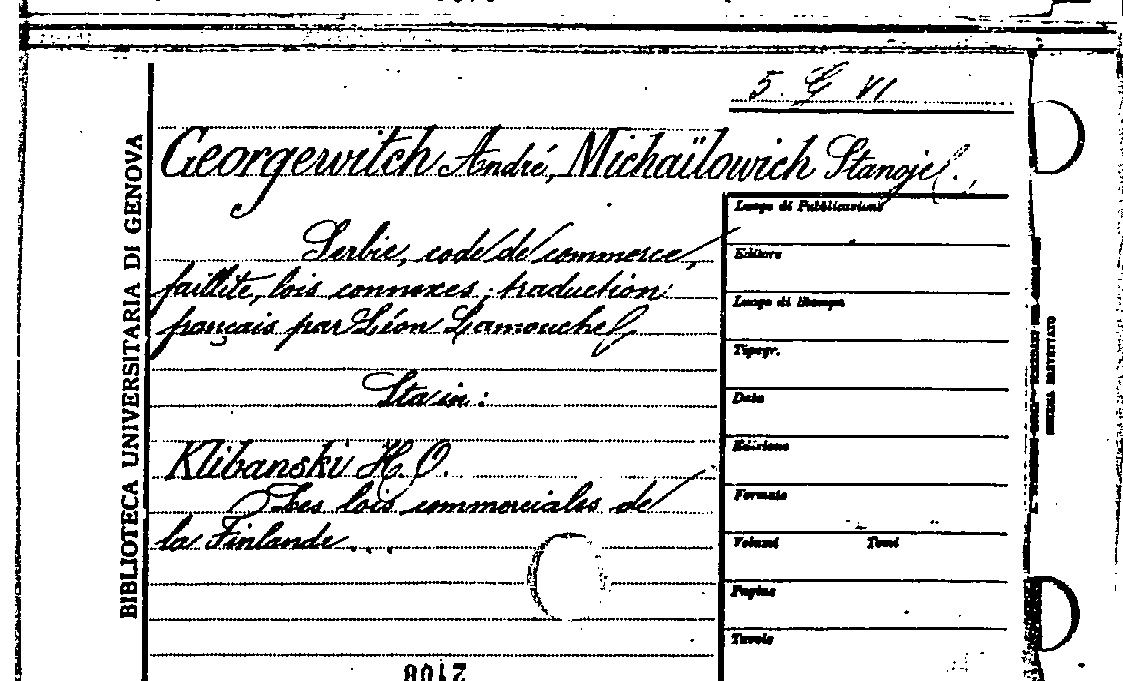 5. G VI
Georgewitch André, Michaïlowich Stanoje.,
Serbie, code de commerce,
faillite, lois connexes; traduction
français par Léon Lamouche
Sta in:
Klibanski H. O.
Les lois commerciales de
la Finlande...
BIBLIOTECA UNIVERSITARIA DI GENOVA
Luogo di Pubblicazione
Editore
Luogo di Stampa
Tipogr.
Data
Edizione
Formato
Volumi Tomi
Pagine
Tavole
2108